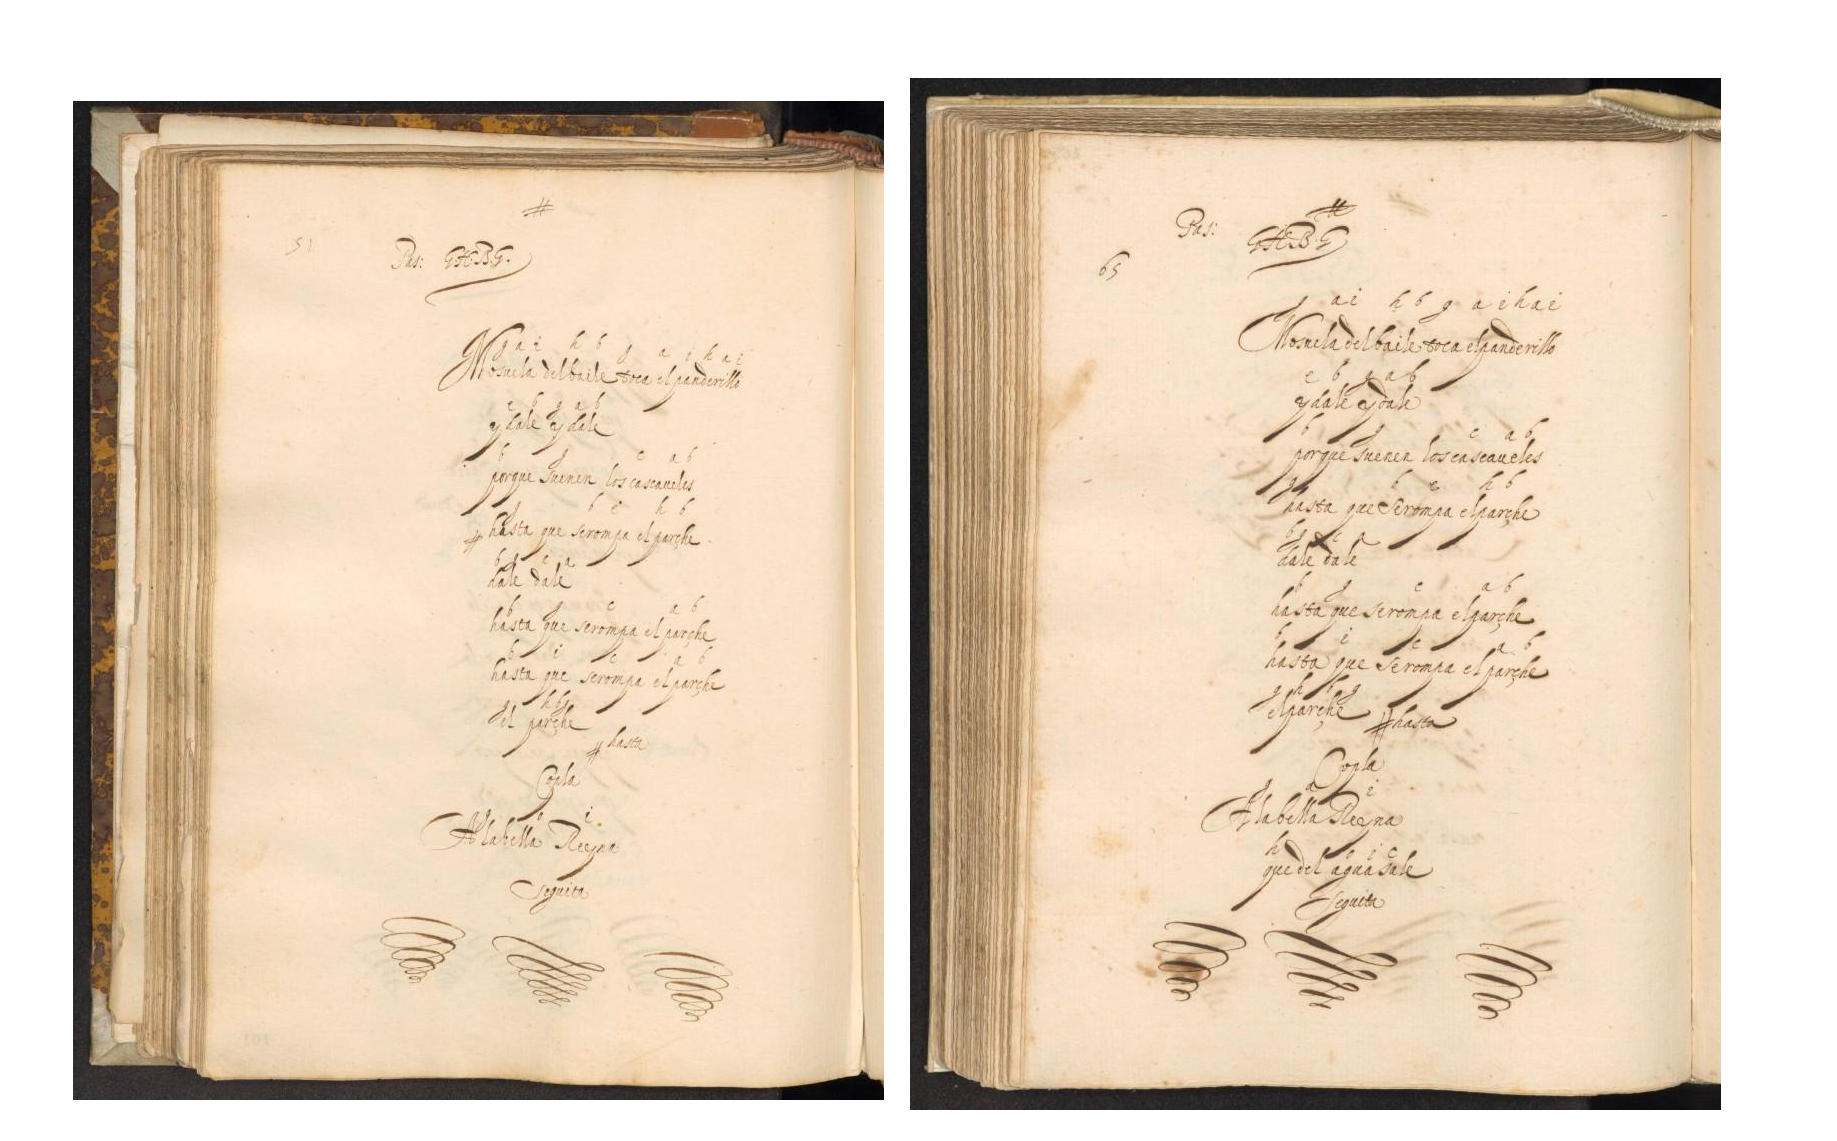 #
51 Pas: G.H.B.G.
g a i h b g a i h a i
Mosuela del baile toca el panderillo
e b g a b
y dale y dale
b g c a b
porque suenen los cascaueles
g b e h b
# hasta que se rompa el parche
b g c a
dale dale
b g c a b
hasta que se rompa el parche
b i c a b
hasta que se rompa el parche
g h b g
el parche
# hasta
Copla
i
A la bella Reyna
Seguita
#
Pas: G.H.B.G
65
g a i h b g a i h a i
Mosuela del baile toca el panderillo
e b g a b
y dale y dale
b g c a b
porque suenen los cascaueles
g b e h b
hasta que se rompa el parche
b g c a
dale dale
b g c a b
hasta que se rompa el parche
b i c a b
hasta que se rompa el parche
g h b g
el parche # hasta
Copla
a i
A la bella Reyna
h g i c
que del agua sale
Seguita